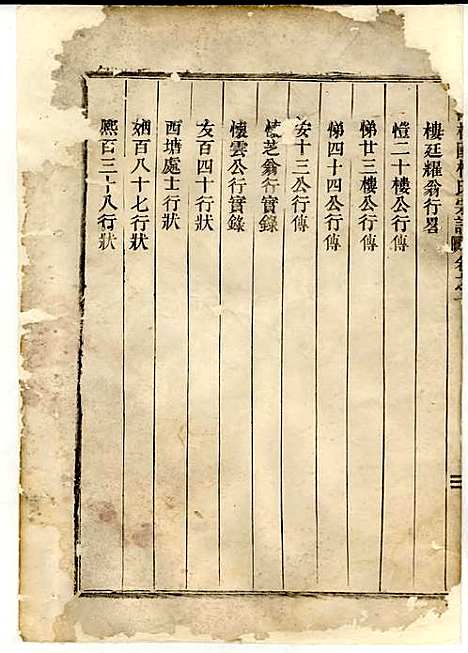 樓氏宗譜 卷之
三
樓廷耀翁行畧
愷二十樓公行傳
悌廿三樓公行傳
悌四十四公行傳
安十三公行傳
芝翁行實錄
懷雲公行實錄
友百四十行狀
西塘處士行狀
百八十七行狀
熈百三十八行狀